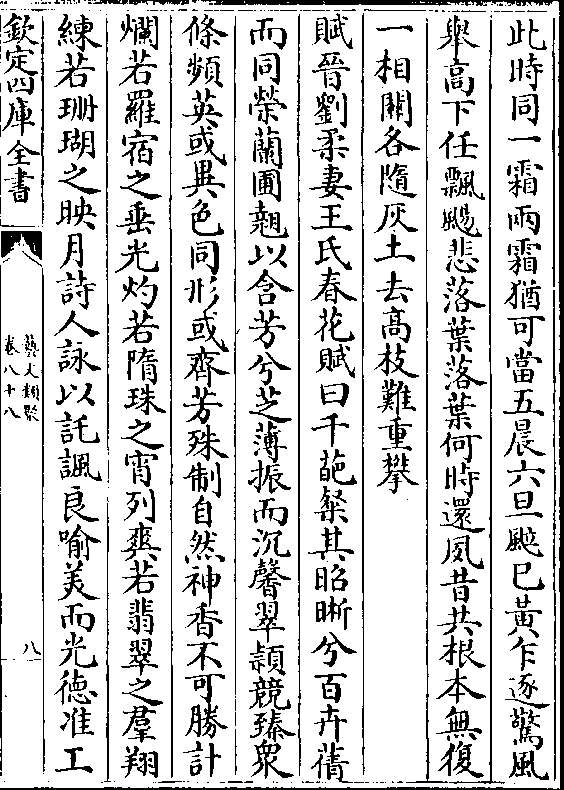 此時同一霜兩霜猶可當五晨六旦颭巳黃乍逐驚風
舉高下任飄颺悲落葉落葉何時還夙昔共根本無復
一相關各隨灰土去高枝難重攀
賦晉劉柔妻王氏春花賦曰千葩粲其昭晰兮百卉蒨
而同榮蘭圃翹以含芳兮芝薄振而沉馨翠頴競臻衆
條頻英或異色同形或齊芳殊制自然神香不可勝計
爛若羅宿之垂光灼若隋珠之宵列爽若翡翠之羣翔
練若珊瑚之映月詩人詠以託諷良喻美而光德准工
欽定四庫全書
藝文類聚
卷八十八
八